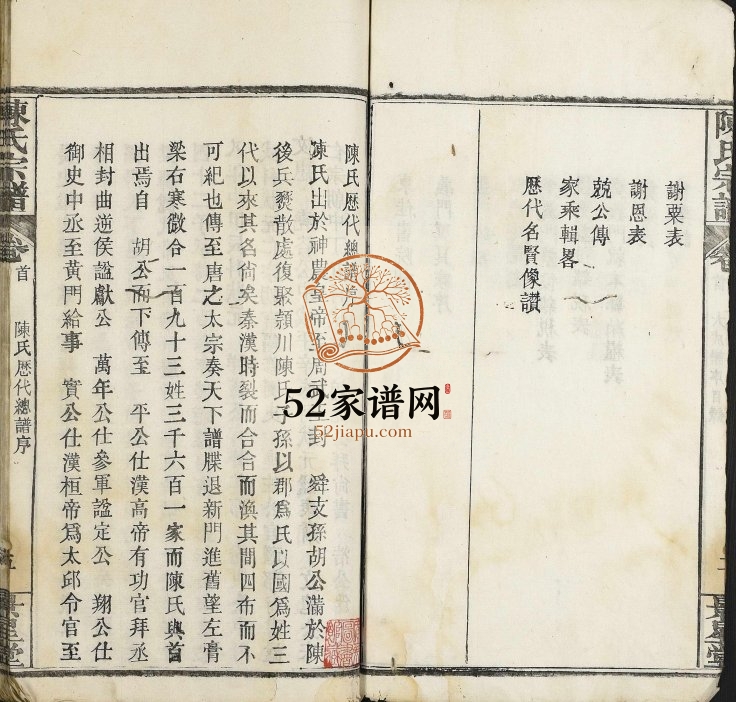 謝粟表
謝恩表
兢公傳
家乘輯畧
歷代名賢像讃
陳氏宗譜
陳氏歷代總譜序
陳氏出於神農皇帝至周武王封 舜支孫胡公滿於陳
後兵燹散處復聚頴川陳氏子孫以郡爲氏以國爲姓三
代以來其名尙矣秦漢時裂而合合而渙其間四布而不
可紀也傳至唐之太宗奏天下譜牒退新門進舊望左膏
梁右寒微合一百九十三姓三千六百一家而陳氏與首
出焉自 胡公而下傳至 平公仕漢高帝有功官拜丞
相封曲逆侯諡獻公 萬年公仕參軍諡定公 翔公仕
御史中丞至黃門給事 實公仕漢桓帝爲太邱令官至
陳氏宗譜
卷首
陳氏歷代總譜序
景星堂
52家谱网
52jiapu.com